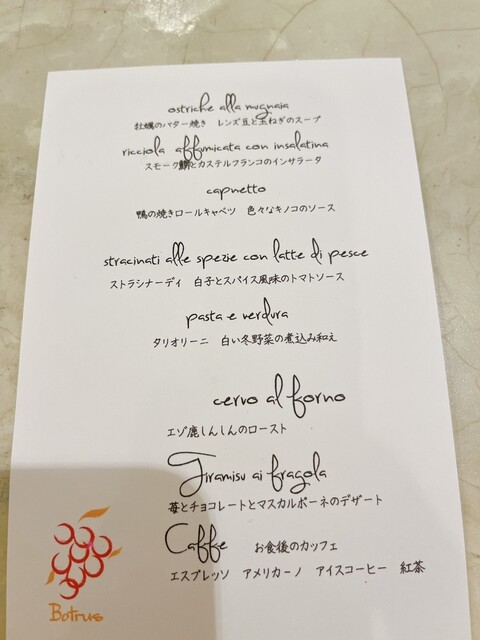 ostriche alla mugnaia
牡蠣のバター焼き　レンズ豆と玉ねぎのスープ
ricciola affumicata con insalatina
スモーク鰤とカステルフランコのインサラータ
capnetto
鴨の焼きロールキャベツ　色々なキノコのソース
stracinati alle spezie con latte di pesce
ストラシナーディ　白子とスパイス風味のトマトソース
pasta e verdura
タリオリーニ　白い冬野菜の煮込み和え
cervo al forno
エゾ鹿しんしんのロースト
Tiramisu ai fragola
苺とチョコレートとマスカルポーネのデザート
Caffe　お食後のカッフェ
エスプレッソ　アメリカーノ　アイスコーヒー　紅茶
Botrus